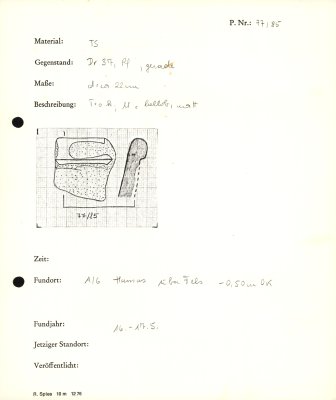 P. Nr.: 77/85
Material: TS
Gegenstand: Dr 37, Rf, gerade
Maße:
Beschreibung: matt
77/85
Zeit:
Fundort: A/6 Humus Fels -0,50 m OK
Fundjahr: 16.-17.5.
Jetziger Standort:
Veröffentlicht:
R. Spies 10 m 12 76